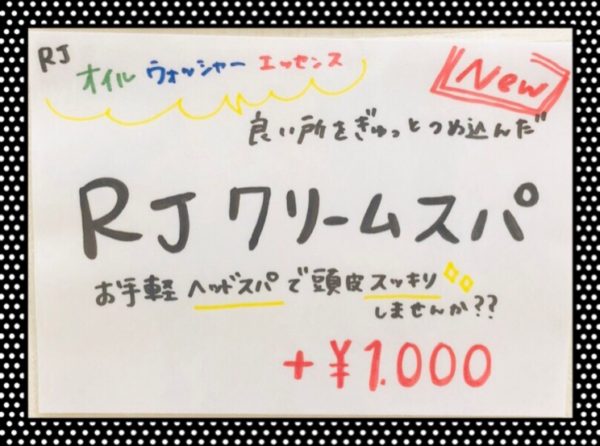 RJ オイル ウォッシャー エッセンス
New
良い所をぎゅっとつめ込んだ
RJ クリームスパ
お手軽 ヘッドスパで頭皮スッキリ
しませんか??
+¥1.000